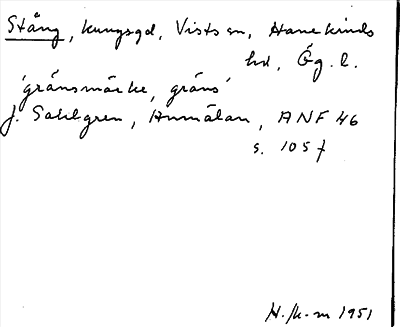 Stång, kungsgd, Vists sn, Hanekinds
hd, Ög. l.
'gränsmärke, gräns'
J. Sahlgren, Anmälan, ANF 46
s. 105 f
1951